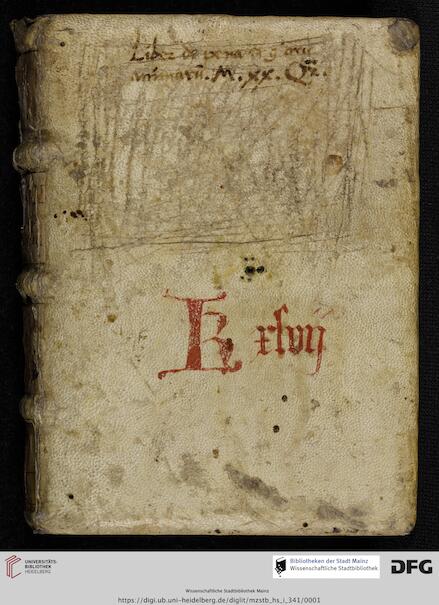 Liber de
M. xx.
K xlvij
UNIVERSITÄTS-
BIBLIOTHEK
HEIDELBERG
Bibliotheken der Stadt Mainz
Wissenschaftliche Stadtbibliothek
DFG
Wissenschaftliche Stadtbibliothek Mainz
https://digi.ub.uni-heidelberg.de/diglit/mzstb_hs_i_341/0001